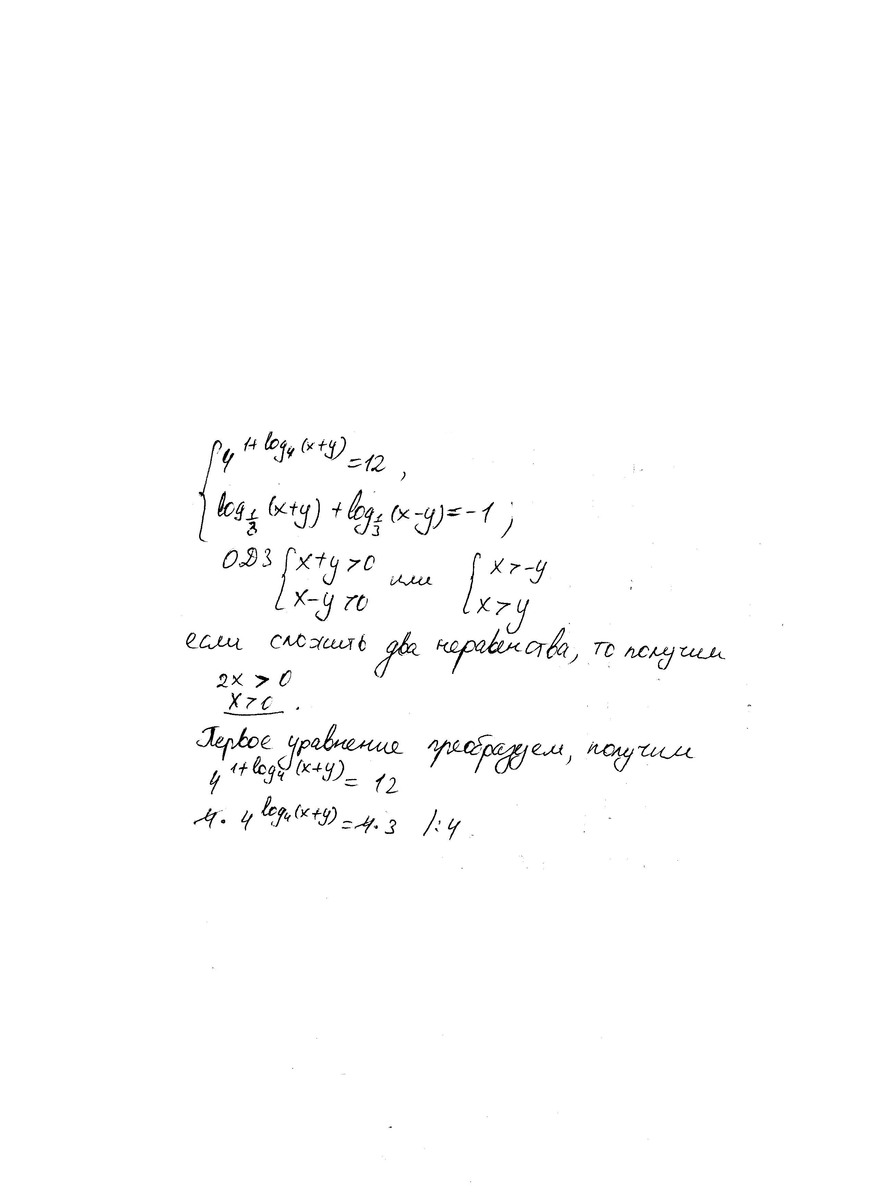 { 4^{1+log_4(x+y)} = 12 ,
log_{1/3}(x+y) + log_{1/3}(x-y) = -1 ;
ОДЗ { x+y>0 или { x>-y
x-y>0 x>y
если сложить два неравенства, то получим
2x > 0
x>0 .
Первое уравнение преобразуем, получим
4^{1+log_4(x+y)} = 12
4 · 4^{log_4(x+y)} = 4 · 3 /:4